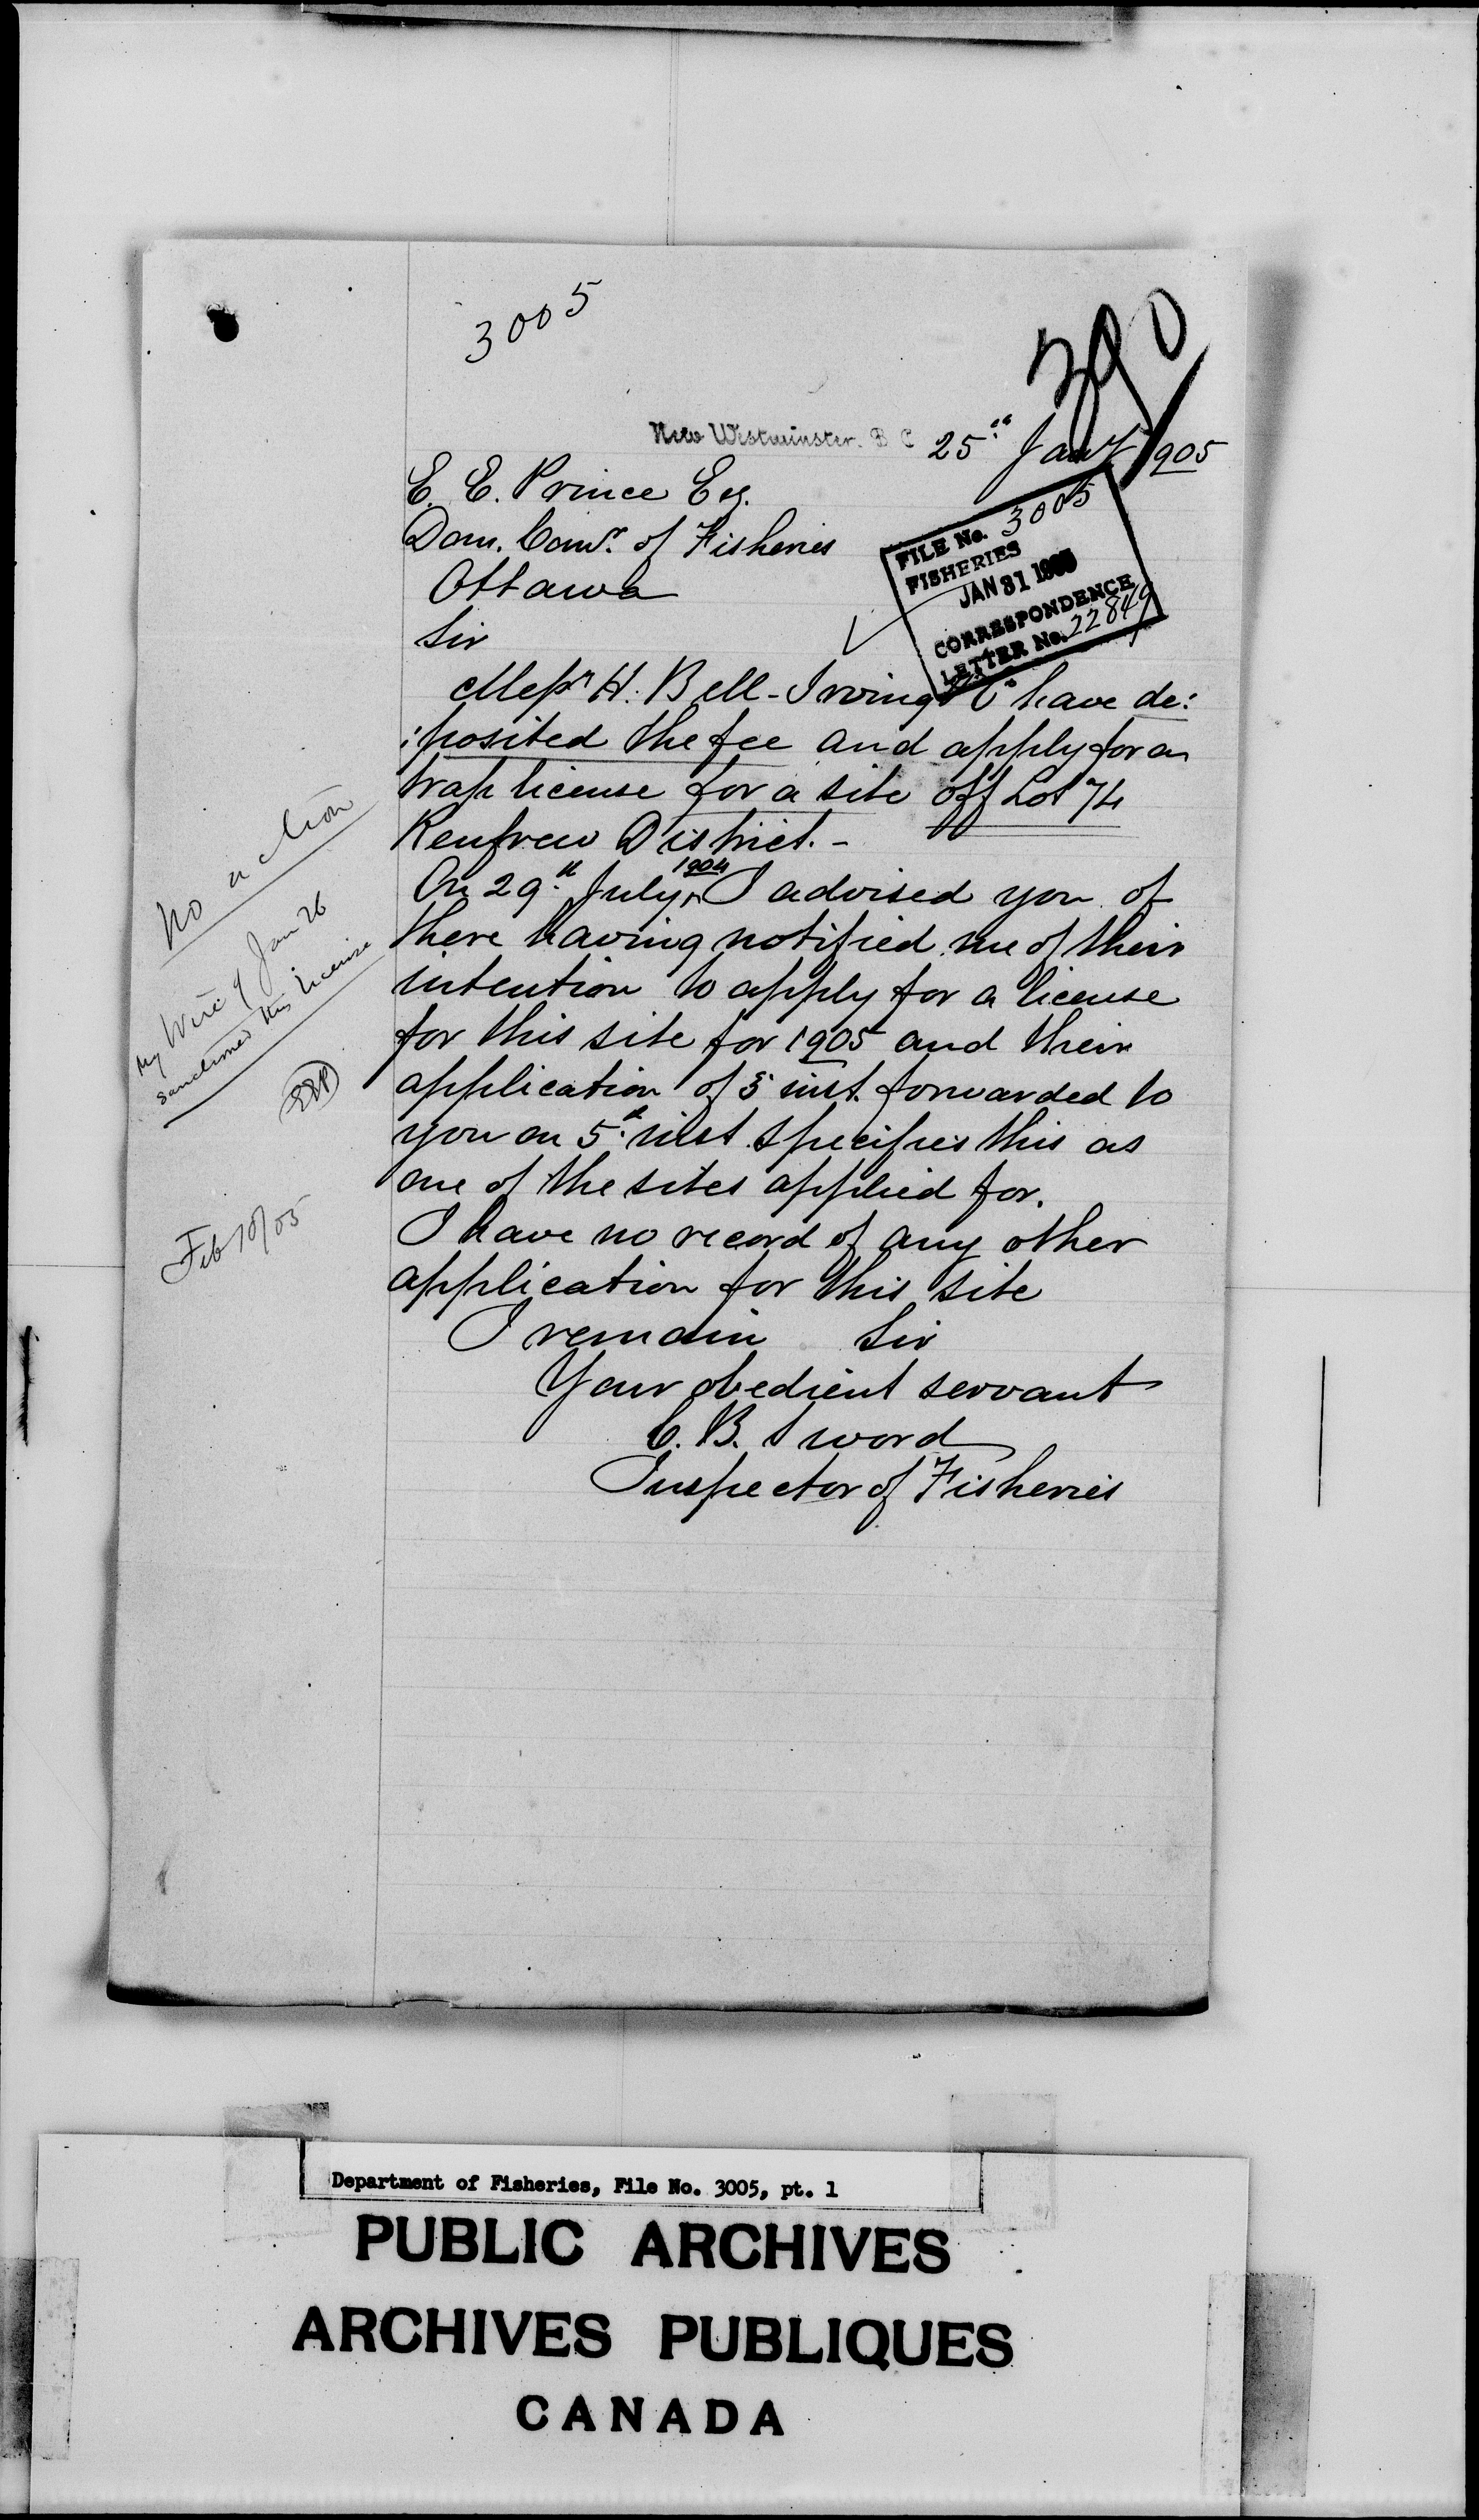 3005
390
New Westminster. B C 25th Jany 1905
E. E. Prince Esq.
Dom. Comr. of Fisheries
Ottawa
Sir
FILE No. 3005
FISHERIES
JAN 31 1905
CORRESPONDENCE
LETTER No. 22849
Messrs H. Bell-Irving & Co have de:
:posited the fee and apply for a
trap license for a site off Lot 74
Renfrew District. -
On 29th July, 1904 I advised you of
there having notified me of their
intention to apply for a license
for this site for 1905 and their
application of 3 inst. forwarded to
you on 5th inst specifies this as
one of the sites applied for.
I have no record of any other
application for this site
I remain Sir
Your obedient servant
C. B. Sword
Inspector of Fisheries
No action
My wire of Jan 26
sanctioned this license
EEP
Feb 10/05
Department of Fisheries, File No. 3005, pt. 1
PUBLIC ARCHIVES
ARCHIVES PUBLIQUES
CANADA